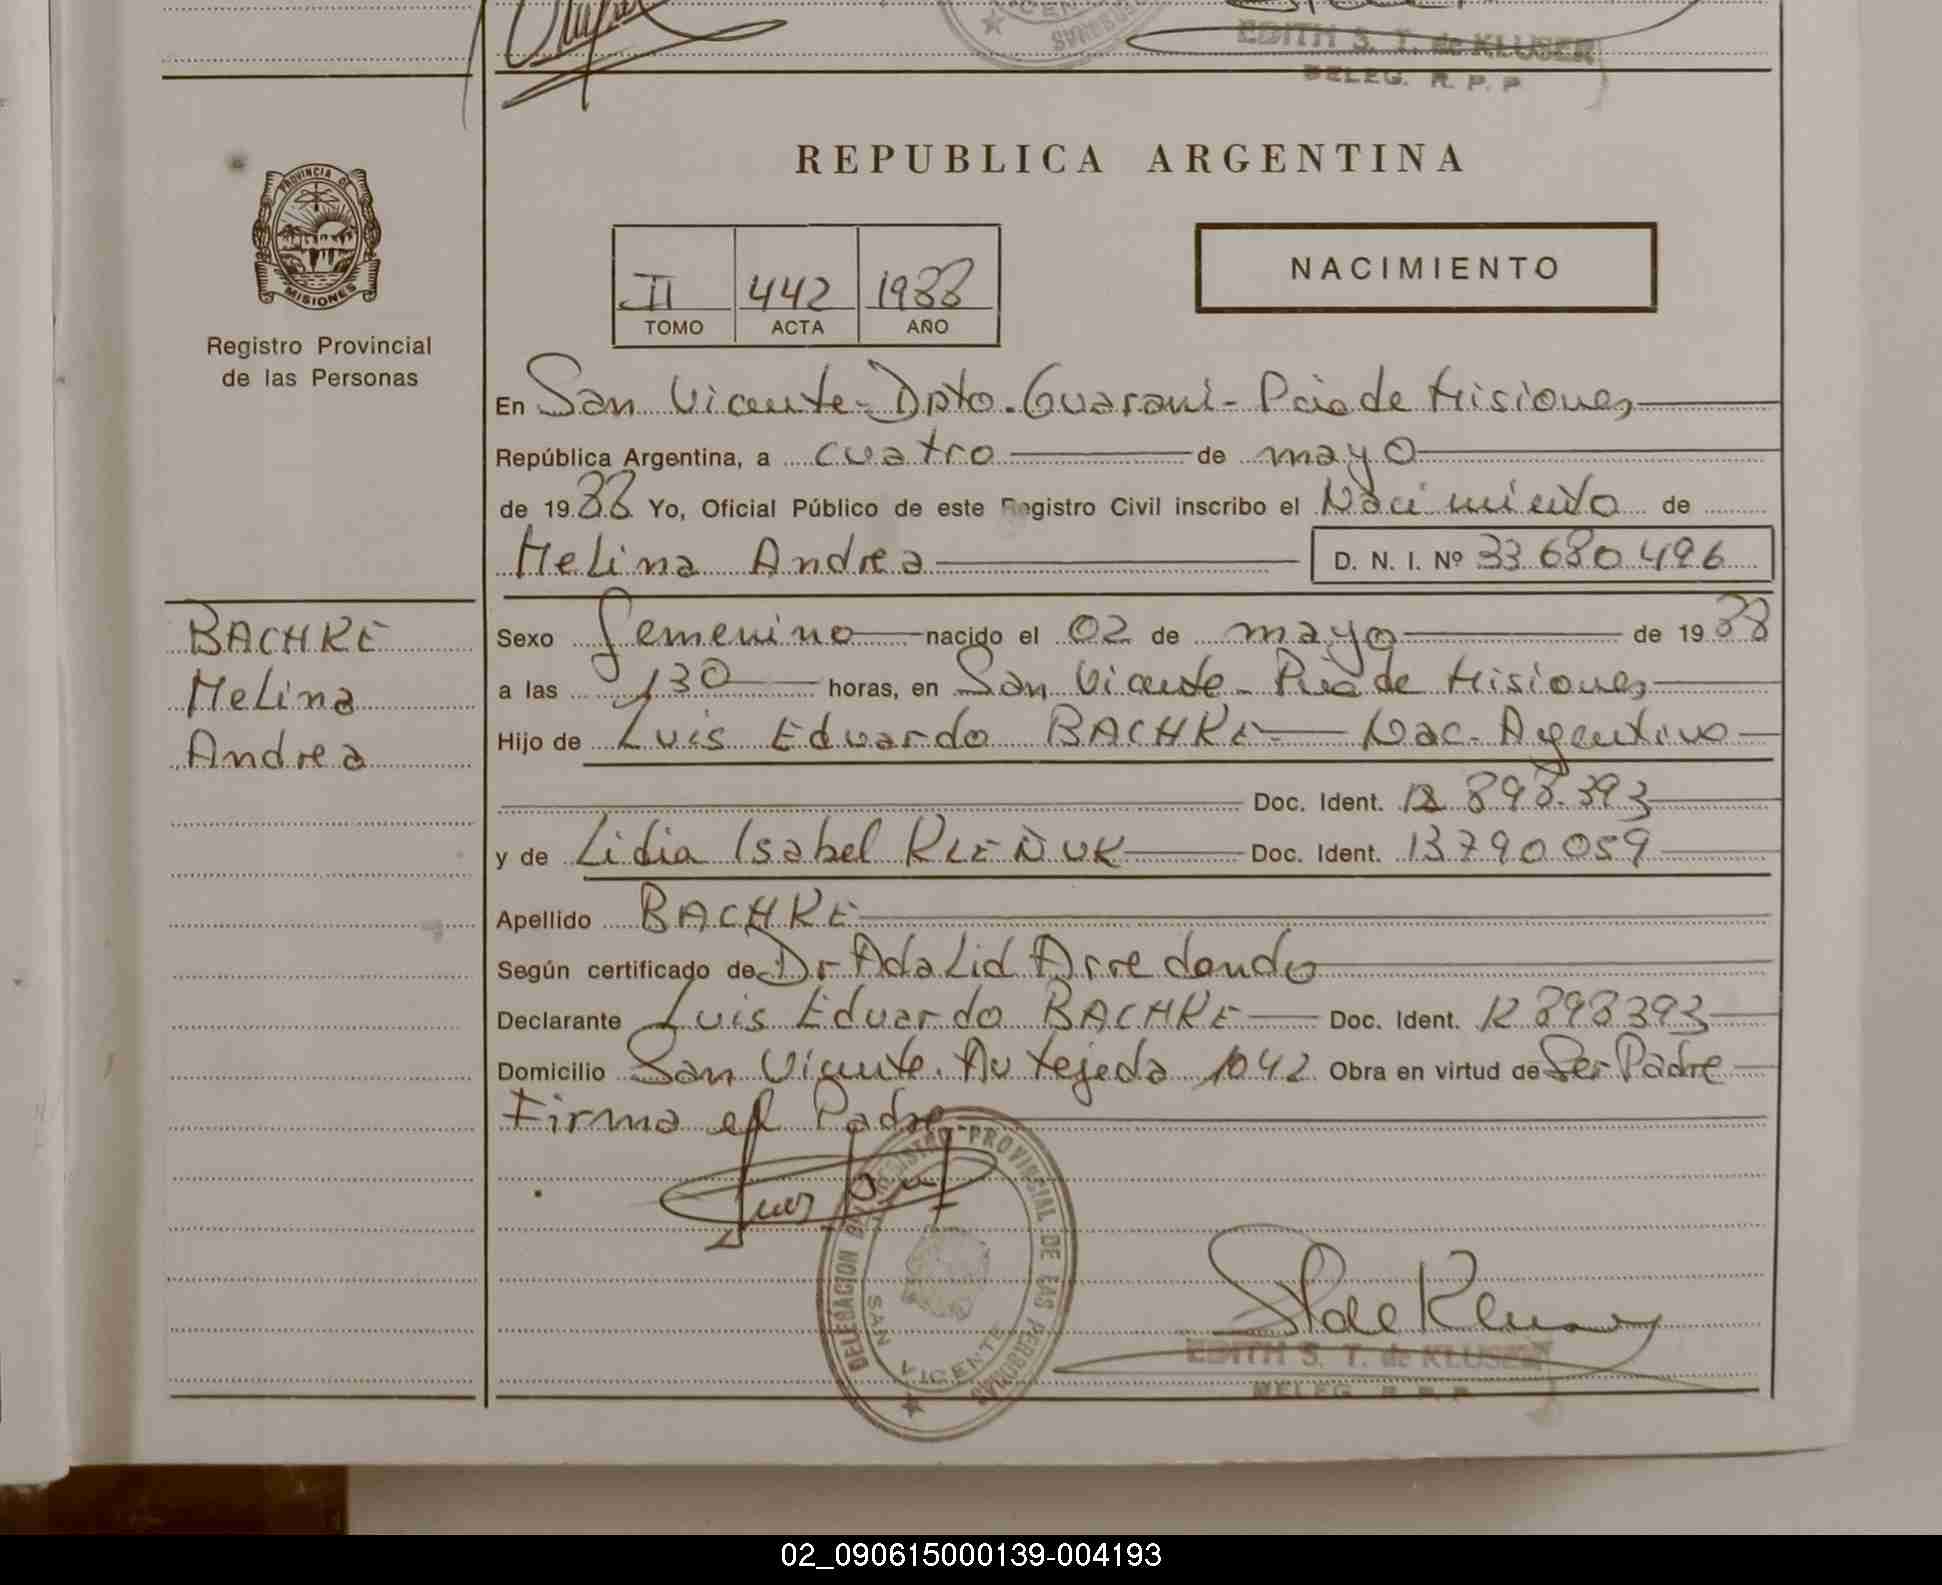 EDITH S. T. de KLUSER
DELEG. R. P. P.
REPUBLICA ARGENTINA
PROVINCIA DE MISIONES
Registro Provincial
de las Personas
II 442 1988
TOMO ACTA AÑO
NACIMIENTO
En San Vicente - Dpto. Guaraní - Pcia de Misiones
República Argentina, a cuatro de mayo
de 1988 Yo, Oficial Público de este Registro Civil inscribo el Nacimiento de
Melina Andrea D. N. I. Nº 33.680.496
BACHKE
Melina
Andrea
Sexo femenino nacido el 02 de mayo de 1988
a las 130 horas, en San Vicente - Pcia de Misiones
Hijo de Luis Eduardo BACHKE - Nac. Argentino
Doc. Ident. 12 898.393
y de Lidia Isabel KLEÑUK Doc. Ident. 13790059
Apellido BACHKE
Según certificado de Dr Adalid Arredondo
Declarante Luis Eduardo BACHKE Doc. Ident. 12 898393
Domicilio San Vicente. Av Tejeda 1042 Obra en virtud de Ser Padre
Firma el Padre
DELEGACION REGISTRO PROVINCIAL DE LAS PERSONAS
SAN VICENTE
EDITH S. T. de KLUSER
DELEG. R. P. P.
02_090615000139-004193